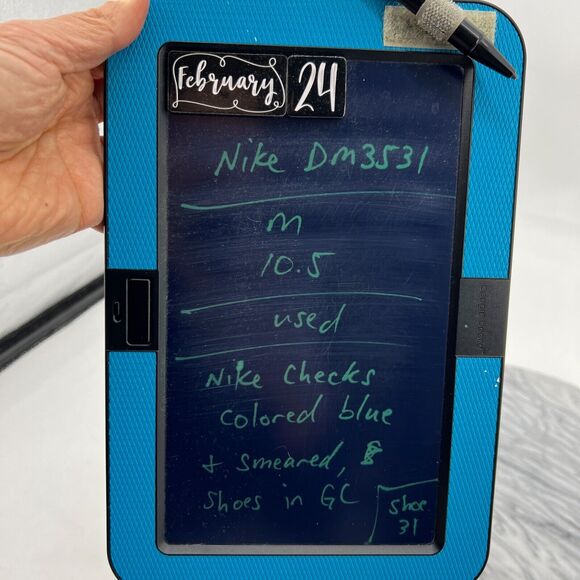 February 24
Nike DM3531
M
10.5
used
Nike Checks
colored blue
+ smeared,
shoes in GC
shoe
31